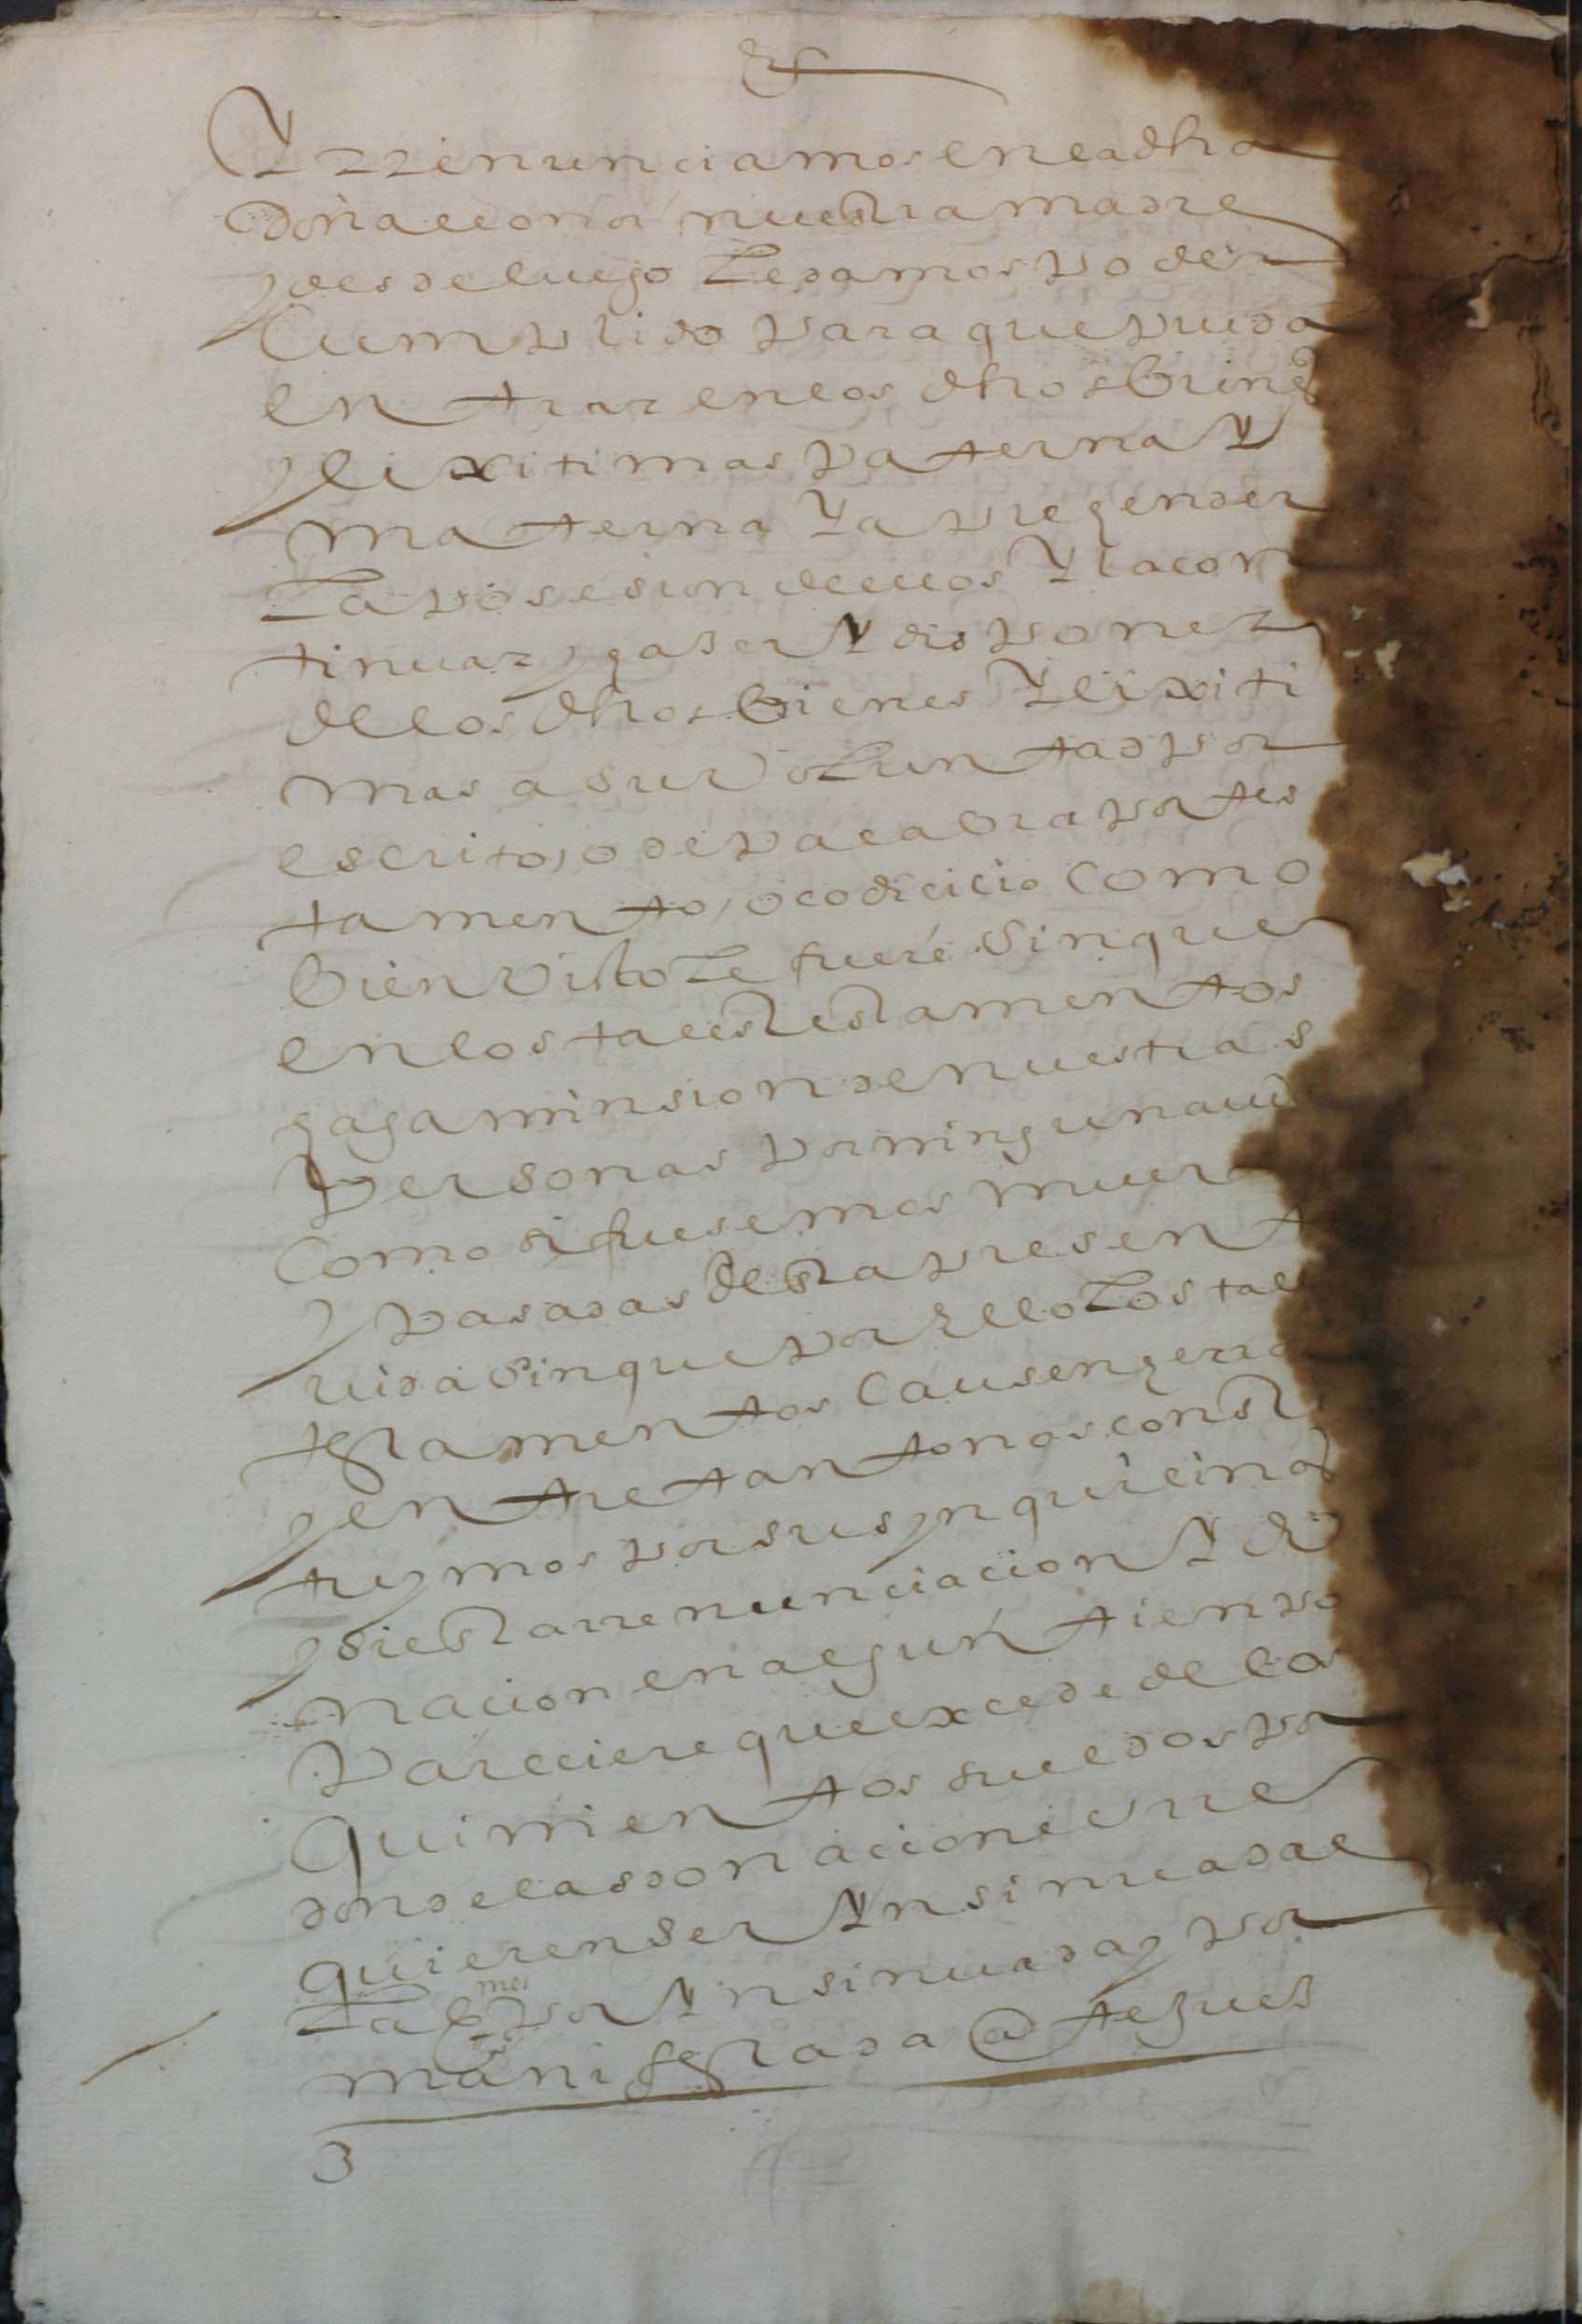 Y rrenunciamos en la dha
doña leonor nuestra madre
y desde luego le damos poder
cumplido para que pueda
entrar en los dhos bienes
y lixitimas paterna y
materna y aprehender
la posesion dellos y la con
tinuar y haser y disponer
de los dhos bienes y lixiti
mas a su voluntad por
escrito, o de palabra por tes
tamento, o codicilio como
bien visto le fuere sin que
en los tales testamentos
haga minsion de nuestras
personas por ninguna vi
como si fuesemos muer
y pasadas desta present
vida sin que por ello los tale
testamentos causen herro
y entre tanto nos consti
tuymos por sus ynquilinos
y si esta rrenunciacion y do
nacion en algun tienpo
pareciere que excede de los
quinientos sueldos por
donde las donaciones rre
quieren ser ynsinuadas
la por ynsinuada y por
manifestada ante jues
3